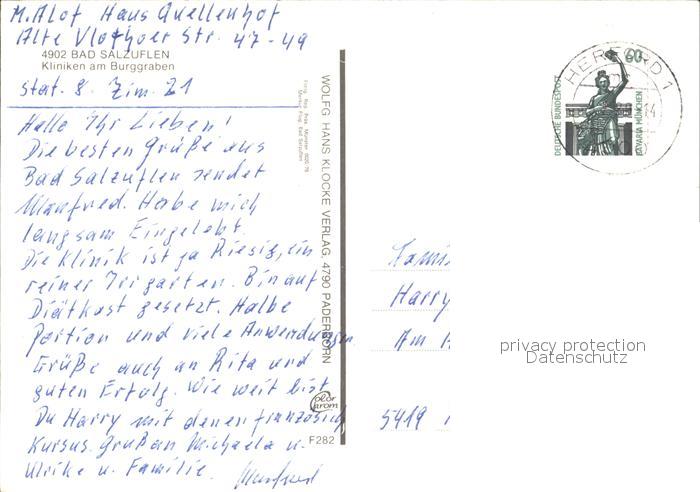 M. Alof Haus Quellenhof
Alte Vlothoer Str. 47-49
4902 BAD SALZUFLEN
Kliniken am Burggraben
Stat. 8. Zim. 21
Hallo Ihr Lieben!
Die besten Grüße aus
Bad Salzuflen sendet
Manfred. Habe mich
langsam Eingelebt.
Die Klinik ist ja Riesig, ein
reiner Irrgarten. Bin auf
Diätkost gesetzt. Halbe
Portion und viele Anwendungen
Grüße auch an Rita und
guten Erfolg. Wie weit bist
Du Harry mit deinen französich
Kursus. Grüßen Michaela u.
Ulrike u. Familie. Manfred
WOLFG. HANS KLOCKE VERLAG, 4790 PADERBORN
Color
F282
HERFORD 1
60
DEUTSCHE BUNDESPOST
BAVARIA MÜNCHEN
Harry
Am
5419
privacy protection
Datenschutz